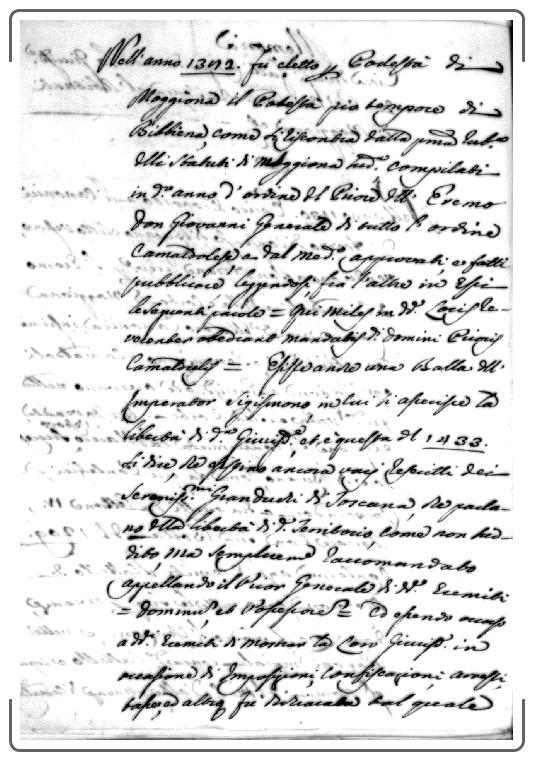 Nell'anno 1372. fù eletto p Podestà di
Moggiona il Podestà pro tempore di
Bibbiena, come si riscontra dalla pma Rub.a
delli Statuti di Moggiona sud.a compilati
in d.o anno d'ordine del Priore dell' Eremo
Don Giovanni Generale di tutto l'ordine
Camaldolese, e dal med.o approvati, e fatti
pubblicare leggendosi fra l'altre in Essi
le seguenti parole = Qui Miles in dd. Locis te-
obediant mandatis d. domini Prioris
Camaldulensis = Esiste ancora una Bolla dell'
Imperator Sigismono, in cui si asserisce la
libertà di d.a Giurisd.e, et è questa del 1433.
Si dice, che esistino ancora varj rescritti dei
Serenissimi Granduchi di Toscana, che parla-
no della libertà di d.o Territorio, come non sud-
dito, ma semplicem.e raccomandato
appellando il Prior Generale di dd. Eremiti
= Dominus, et Possessore = Ed essendo occorso
a dd. Eremiti di mostrar la loro Giurisd.e in
occasione di Imposizioni, Confiscazioni, arresti,
tasse, ed altro, fù dichiarato dal quale